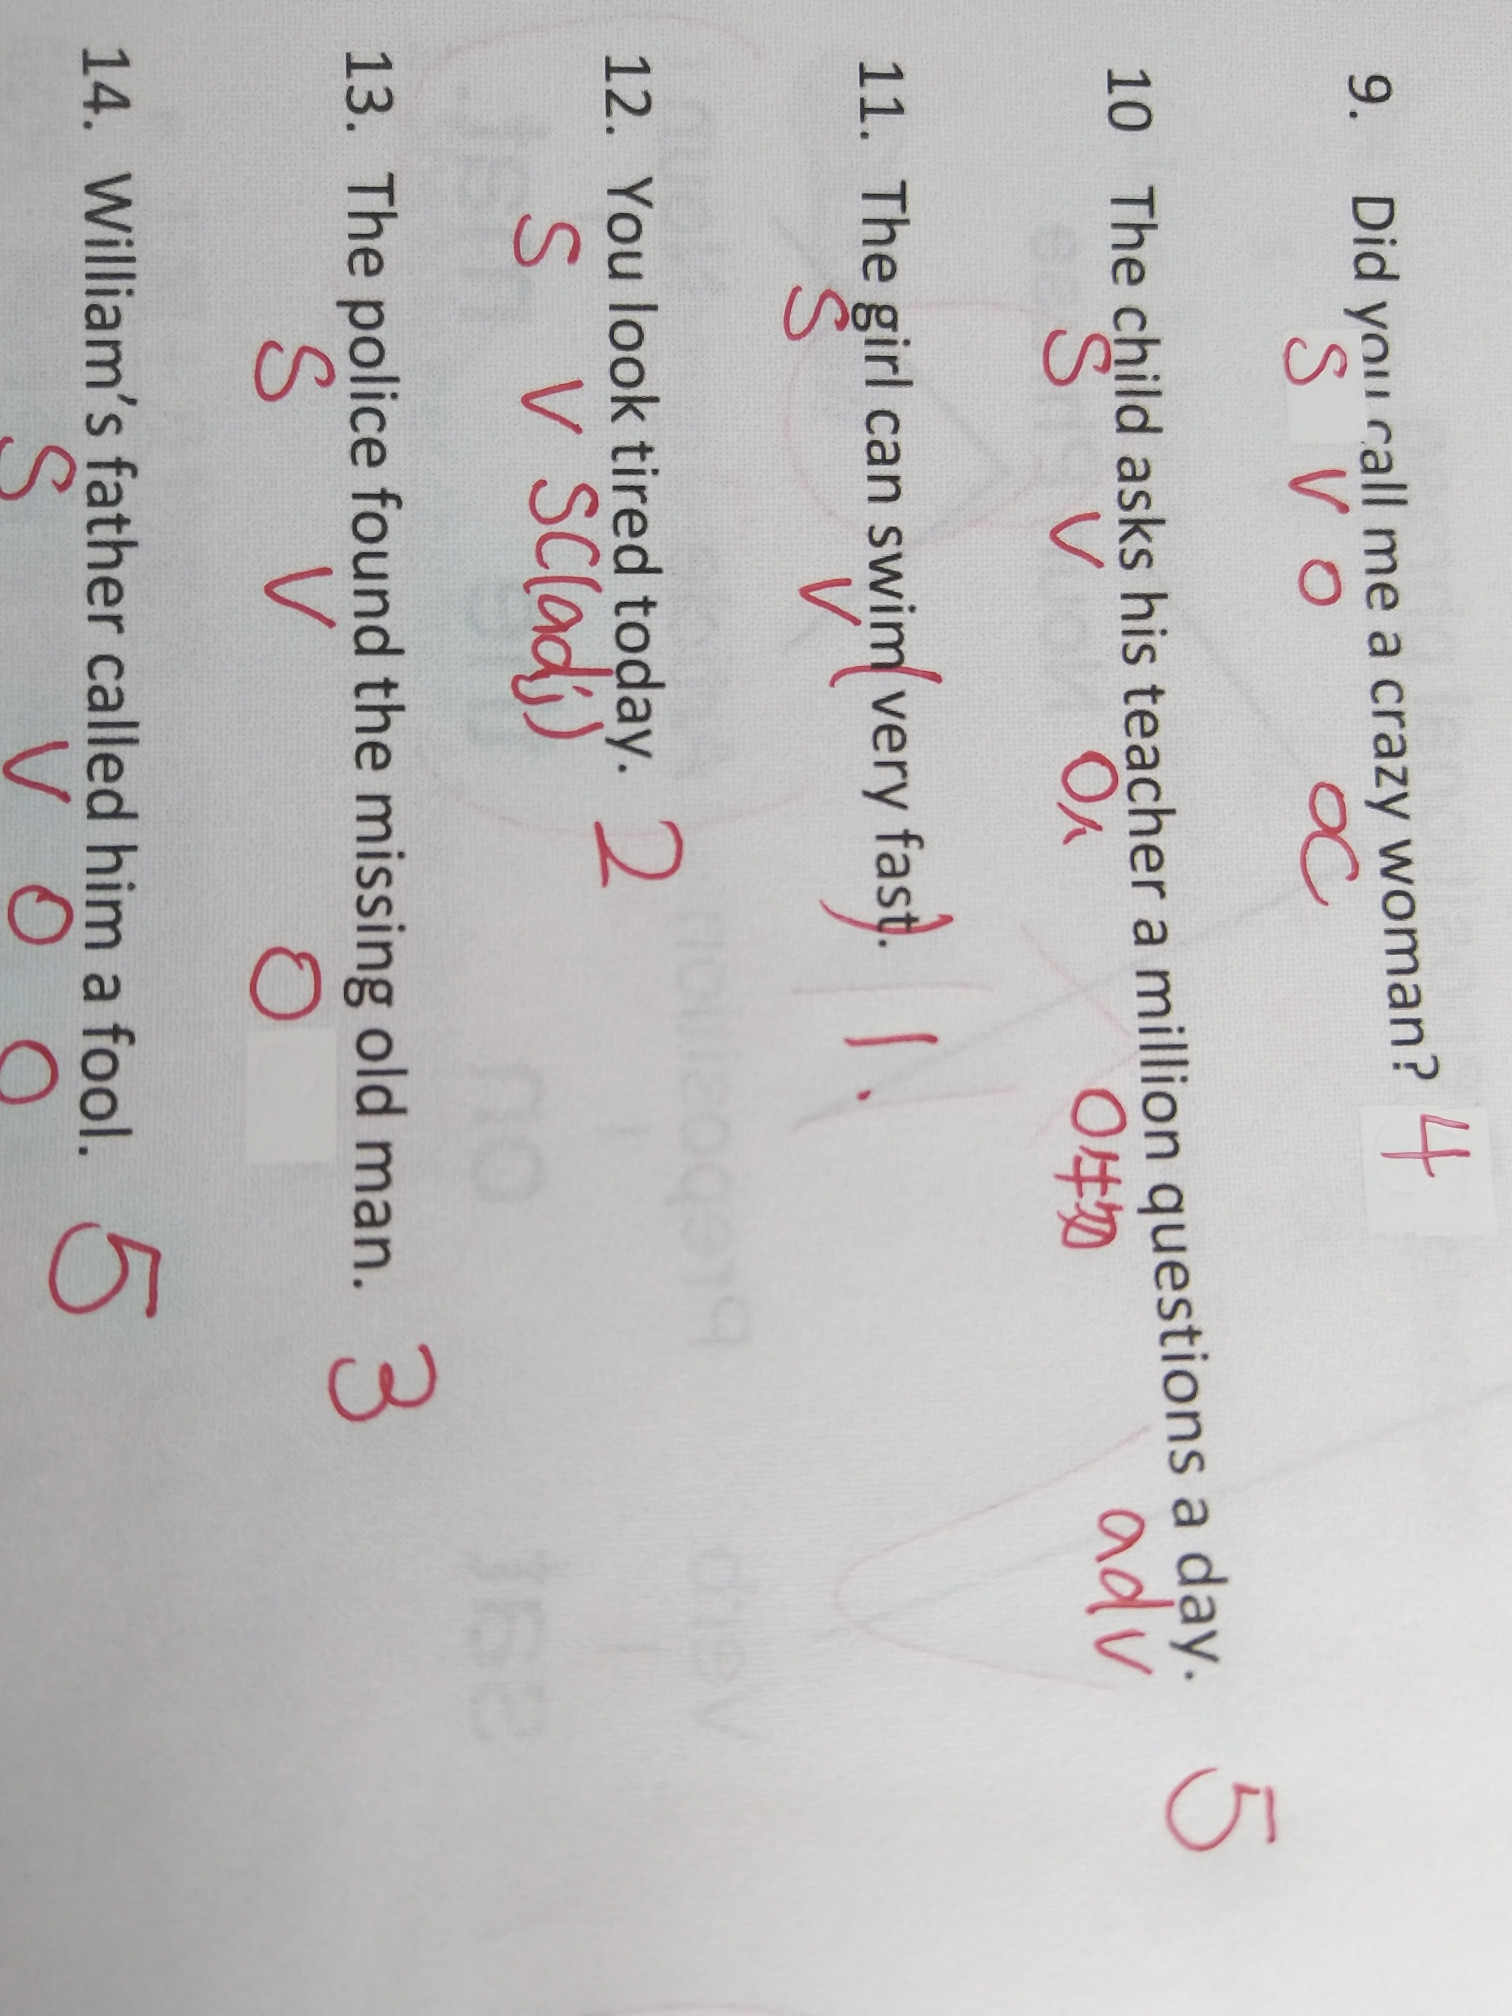 9. Did you call me a crazy woman? 4
S V O OC
10 The child asks his teacher a million questions a day. 5
S V O人 O牛勿 adv
11. The girl can swim( very fast). 1.
S V
12. You look tired today. 2
S V SC(adj)
13. The police found the missing old man. 3
S V O
14. William's father called him a fool. 5
S V O O